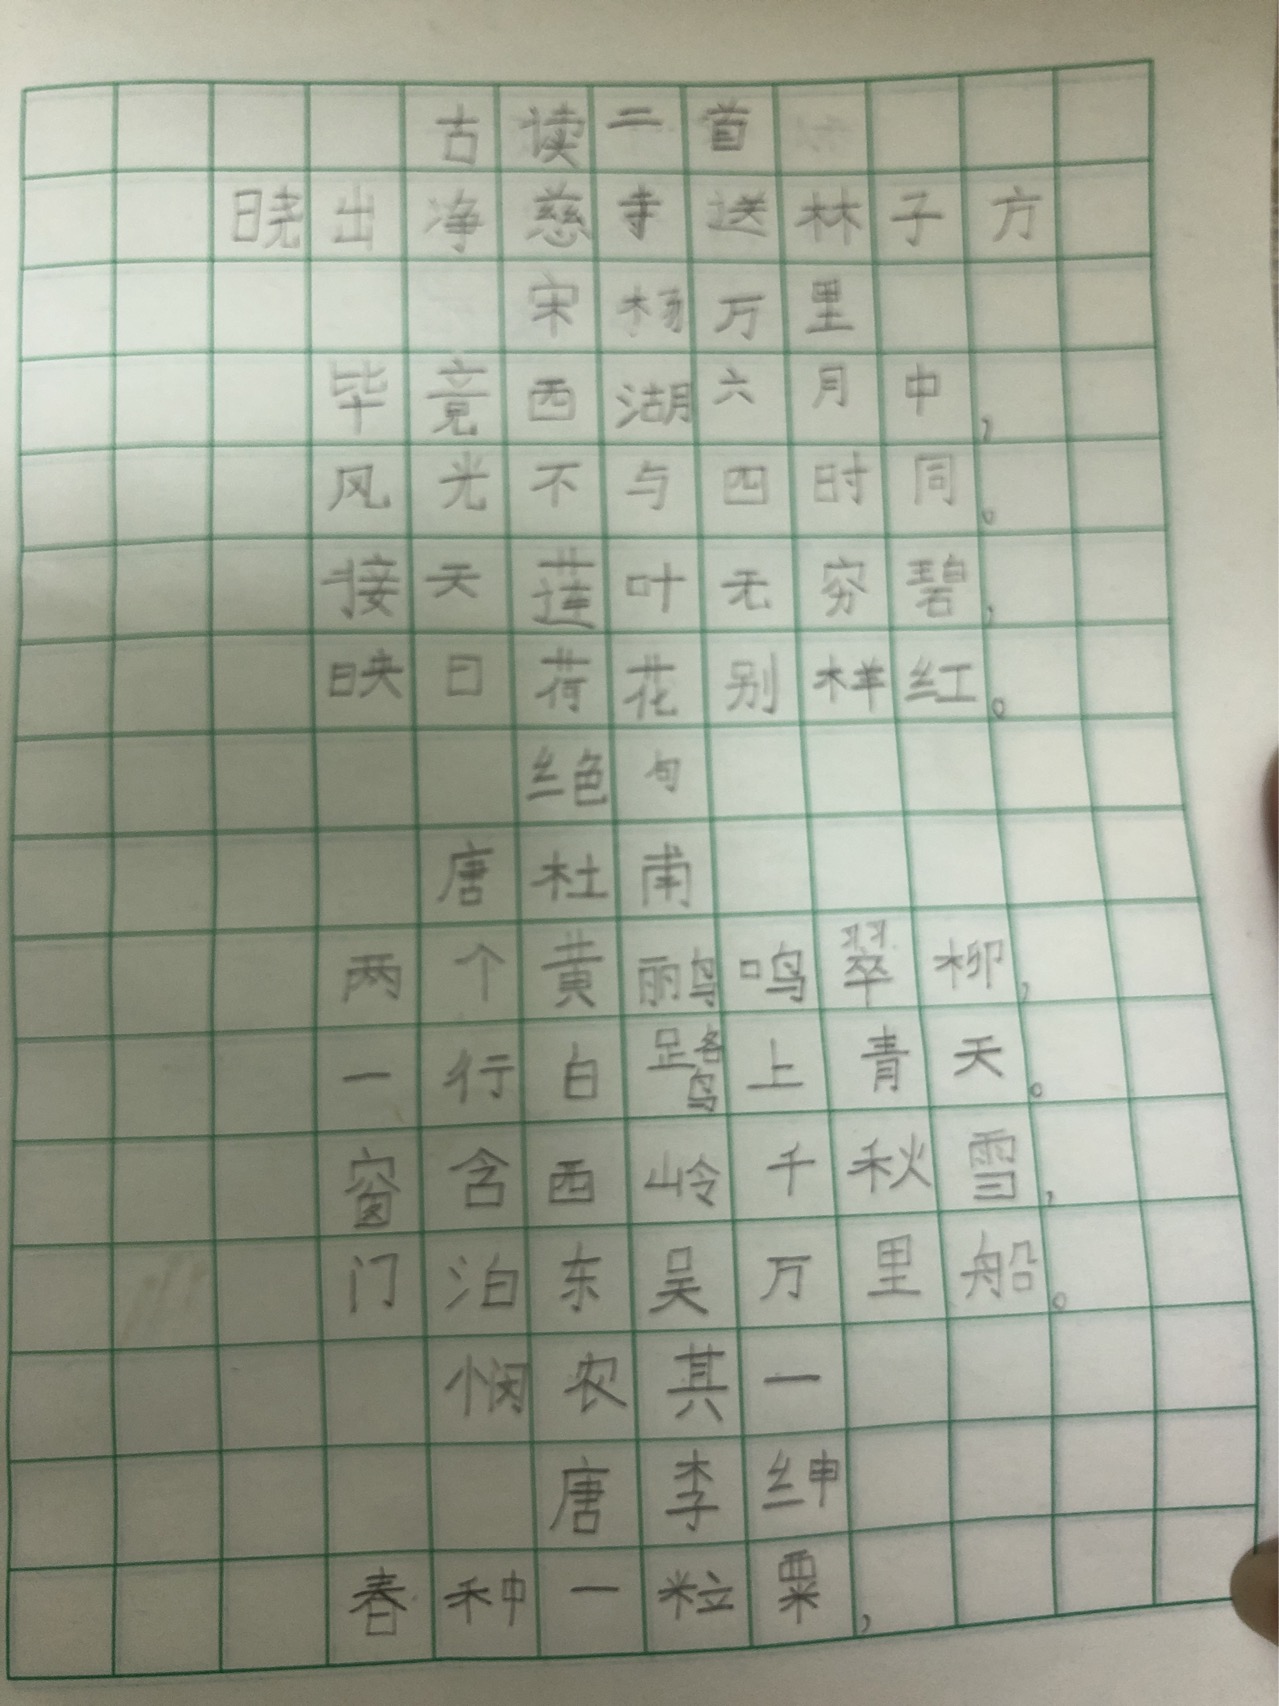 古读二首
晓出净慈寺送林子方
宋杨万里
毕竟西湖六月中，
风光不与四时同。
接天莲叶无穷碧，
映日荷花别样红。
绝句
唐杜甫
两个黄鹂鸣翠柳，
一行白鹭上青天。
窗含西岭千秋雪，
门泊东吴万里船。
悯农其一
唐李绅
春种一粒粟，